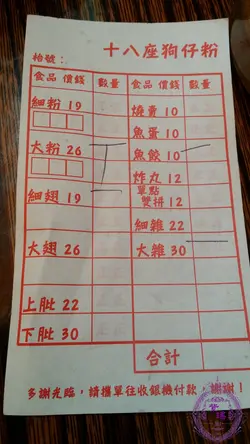 十八座狗仔粉
枱號：
食品 價錢 數量 食品 價錢 數量
細粉 19 燒賣 10
魚蛋 10
大粉 26 魚餃 10
炸丸 12
細翅 19 單點雙拼 12
細雜 22
大翅 26 大雜 30
上肶 22
下肶 30
合計
多謝光臨，請攜單往收銀機付款，謝謝！